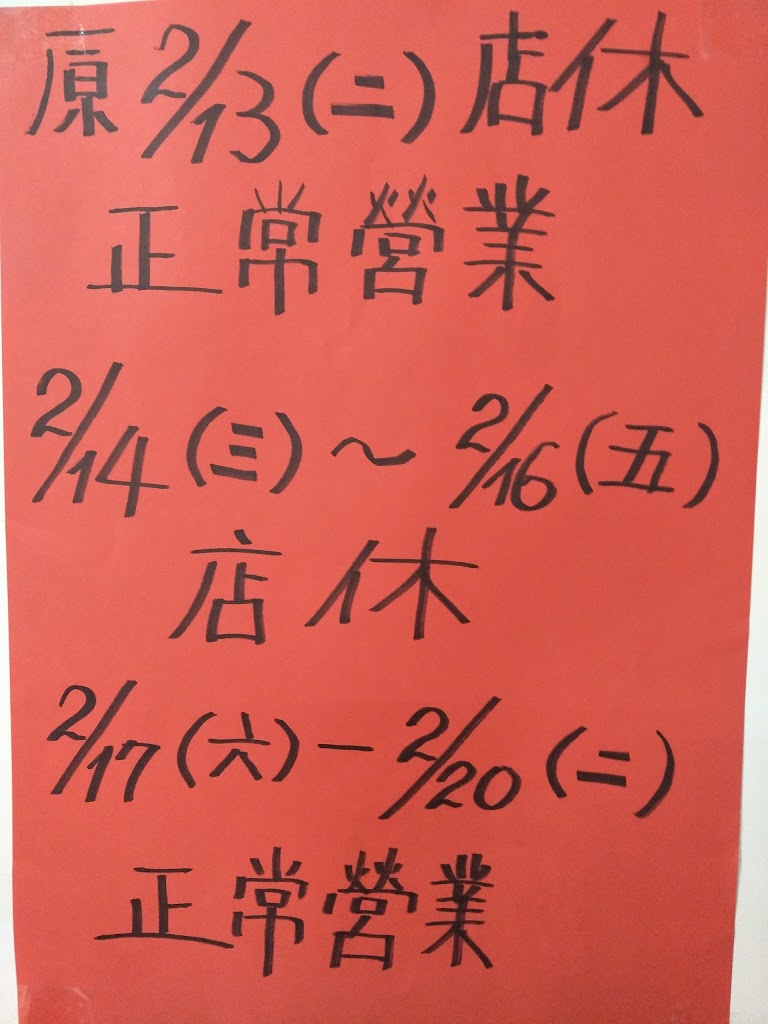 原2/13(二)店休
正常營業
2/14(三)～2/16(五)
店休
2/17(六)－2/20(二)
正常營業